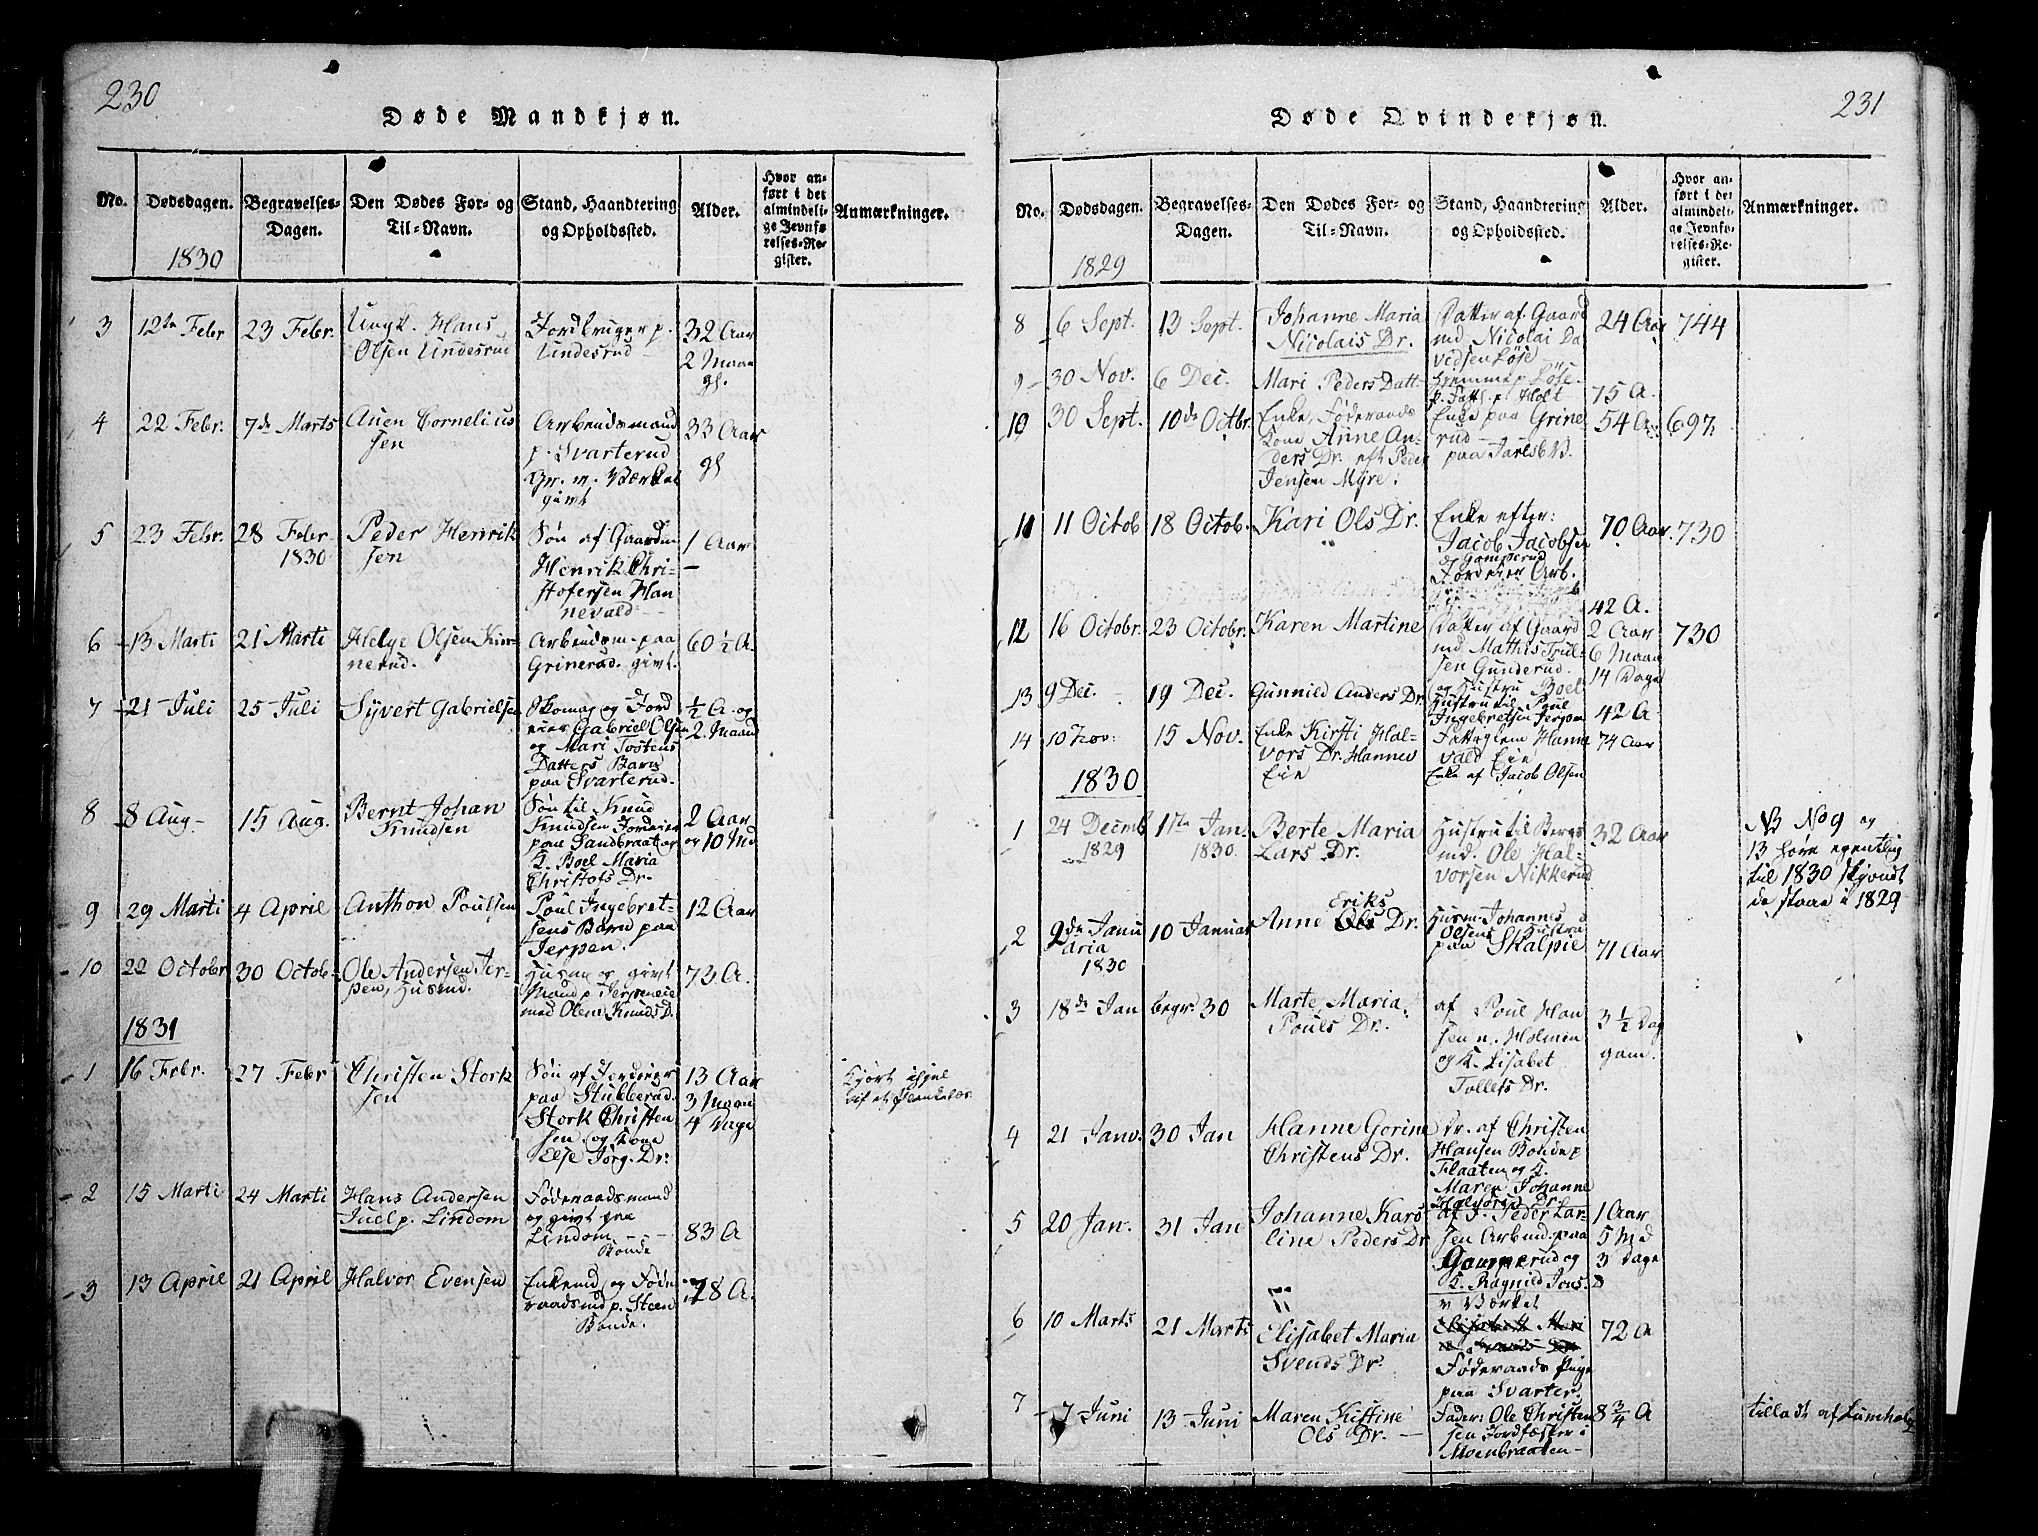 230
Døde Mandkjøn.
No.
Dødsdagen.
1830
Begravelses-
Dagen.
Den Dødes For- og
Til-Navn.
Stand, Haandtering
og Opholdssted.
Alder.
Hvor an-
ført i det
almindeli-
ge Jevnfø-
relses-Re-
gister.
Anmærkninger.
3
12te Febr
23 Febr.
Ungk. Hans
Olsen Lindesrud
Jordbruger p.
Lindesrud
32 Aar
2 Maan
gl.
4
22 Febr.
7de Marts
Auen Cornelius
sen
Arbeidsmand
p. Svarterud
Gr. m. Værket
givt
33 Aar
gl
5
23 Febr.
28 Febr
1830
Peder Henrik
sen
Søn af Gaardm
Henrik Chri-
stofersen Han
nevald
1 Aar
6
13 Marti
21 Marti
Helge Olsen
nerud.
Arbeidsm. paa
Grinerud. givt.
60 1/2 A.
7
21 Juli
25 Juli
Syvert Gabrielsen
Skomag og Jord
eier Gabriel Olsen
og Mari Tostens
Datters Barn
paa Svarterud.
1/2 A. og
2 Maand
8
8 Aug
15 Aug.
Bernt Johan
Knudsen
Søn til Knud
Knudsen Jordeier
paa Sandbraat og
K. Boel Maria
Christofs Dr.
2 Aar
og 10 Md
9
29 Marti
4 April
Anthon Poulsen
Poul Ingebret-
sens Barn paa
Jerpen.
12 Aar
10
22 Octobr
30 Octob
Ole Andersen Jer-
pen, Husmd.
Husm og givt
Mand p. Jerpeneie
med Olene Knuds D.
73 A.
1831
1
16 Febr.
27 Febr
Christen Stork
sen
Søn af Jordeier
paa Stubberud.
Stork Christen
sen og Kone
Else Jørg. Dr.
13 Aar
3 Maan
4 Dage
Kjørt ihjel
af et Plankelæs
2
15 Marti
24 Marti
Hans Andersen
Juel p. Lindom
Føderaadsmand
og givt paa
Lindom
Bonde
83 A
3
13 April
21 April
Halvor Evensen
Enkemd og Føde
raadsmd p. Steen
Bonde.
78 A.
231
Døde Qvindekjøn.
No.
Dødsdagen.
1829
Begravelses-
Dagen.
Den Dødes For- og
Til-Navn.
Stand, Haandtering
og Opholdssted.
Alder.
Hvor an-
ført i det
almindeli-
ge Jevnfø-
relses-Re-
gister.
Anmærkninger.
8
6 Sept.
13 Sept.
Johanne Maria
Nicolais Dr.
Datter af Gaard
md Nicolai Da
vidsen Løse
24 Aar
744
9
30 Nov.
6 Dec.
Mari Peders Datt
hjemme p Løse
p. Fattl. p. Holt
75 A.
10
30 Sept.
10de Octbr.
Enke, Føderaads
Kone Anne An-
ders Dr. eft Peder
Jensen Myre.
Enke paa Grine
rud
paa Jarlsb V.
54 A
697
11
11 Octob
18 Octob.
Kari Ols Dr.
Enke efter:
Jacob Jacobsen
Gomperud
Jordeier Arb.
70 Aar.
730
42 A.
12
16 Octobr.
23 Octobr.
Karen Martine
Datter af Gaard
md Mathis Truls
sen Gunderud.
og Hustru Boel
2 Aar
6 Maan
14 Dage
730
13
9 Dec.
19 Dec.
Gunnild Anders Dr.
Hustru til Poul
Ingebretsen Jerpen
42 A
14
10 Nov:
15 Nov.
Enke Kirsti Hal-
vors Dr. Hannev
Eie
Fattiglem Hanne
vald Eie
Enke af Jacob Olsen
74 Aar
1830
1
24 Decmb
1829
1ste Jan.
1830.
Berte Maria
Lars Dr.
Hustru til Bergs
md. Ole Hal-
vorsen Nikkerud
32 Aar
NB No 9 og
13 høre egentlig
til 1830 skjøndt
de staae i 1829
2
2de Janu
aria
1830
10 Januar
Eriks
Anne Ols Dr.
Husm. Johannes
Olsens Hustru
paa Skalpie
71 Aar
3
18de Jan
begr. 30
Marte Maria
Pouls Dr.
af Poul Han
sen v. Holmen
og K. Lisabet
Tollefs Dr.
3 1/2 Dag
gam.
4
21 Janv.
30 Jan
Hanne Gorine
Christens Dr.
Dr. af Christen
Hansen Bonde p
Flaaten og K.
Maren Johanne
Halvors Dr
5
20 Jan.
31 Jan
Johanne Karo
line Peders Dr
af F. Peder Lar-
sen Arbmd. paa
Gomperud og
K. Ragnild Jons.
v Værket
1 Aar
5 Md
3 Dage
6
10 Marts
21 Marts
Elisabet Maria
Svends Dr.
Føderaads Pige
paa Svarter.
72 A
7
7 Juni
13 Juni
Maren Kistine
Ols Dr.
Fader: Ole Christen
sen Jordfæster i
Moenbraaten
8 3/4 A
tilladt af Lumholtz